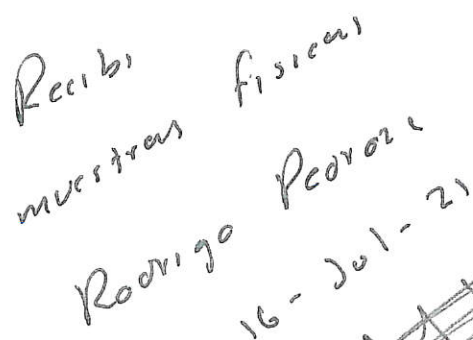 Recibi
muestras fisicas
Rodrigo Pedroza
16-Jul-21